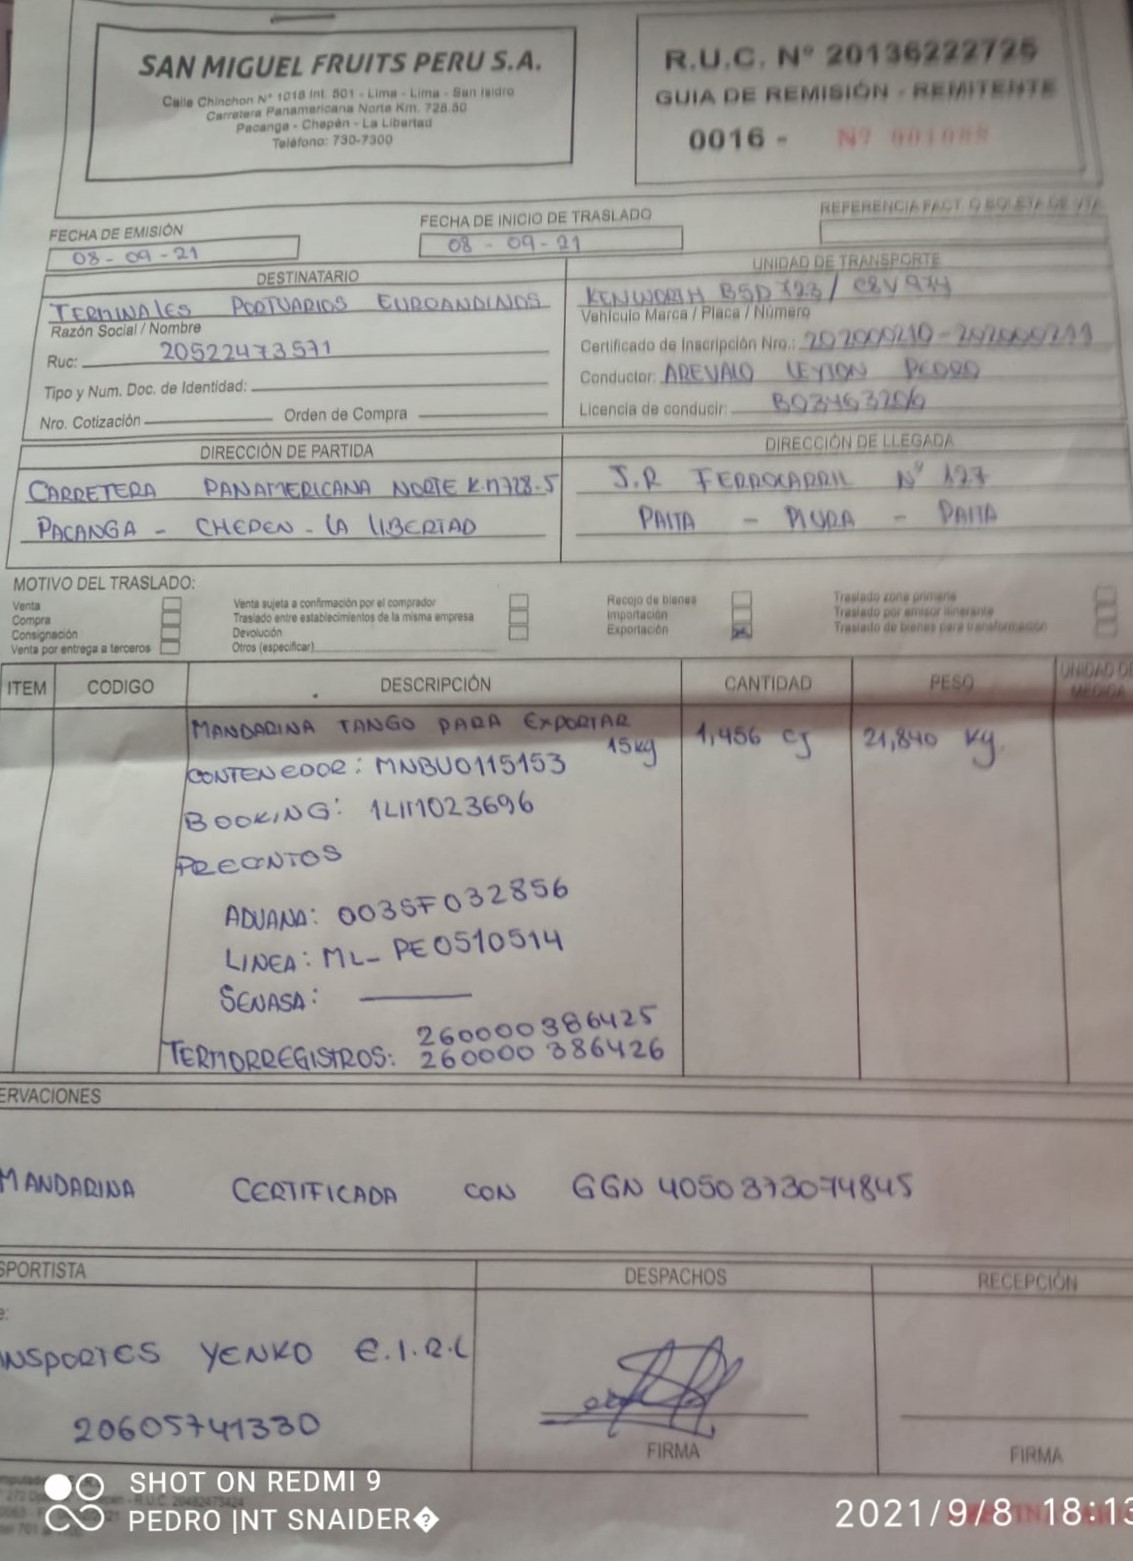 SAN MIGUEL FRUITS PERU S.A.
Calle Chinchon N° 1018 Int. 501 - Lima - Lima - San Isidro
Carretera Panamericana Norte Km. 728.50
Pacanga - Chepén - La Libertad
Teléfono: 730-7300
R.U.C. N° 20136222725
GUIA DE REMISIÓN - REMITENTE
0016 - Nº 001088
FECHA DE EMISIÓN
08 - 09 - 21
FECHA DE INICIO DE TRASLADO
08 - 09 - 21
REFERENCIA FACT. O BOLETA DE VTA
DESTINATARIO
TERMINALES PORTUARIOS EUROANDINOS
Razón Social / Nombre
Ruc: 20522473571
Tipo y Num. Doc. de Identidad:
Nro. Cotización Orden de Compra
UNIDAD DE TRANSPORTE
KENWORTH B5D 723 / C8V 974
Vehículo Marca / Placa / Número
Certificado de Inscripción Nro.: 202000210-202000211
Conductor: AREVALO LEYTON PEDRO
Licencia de conducir: B03463206
DIRECCIÓN DE PARTIDA
CARRETERA PANAMERICANA NORTE K.M728.5
PACANGA - CHEPEN - LA LIBERTAD
DIRECCIÓN DE LLEGADA
J.R FERROCARRIL Nº 127
PAITA - PIURA - PAITA
MOTIVO DEL TRASLADO:
Venta
Compra
Consignación
Venta por entrega a terceros
Venta sujeta a confirmación por el comprador
Traslado entre establecimientos de la misma empresa
Devolución
Otros (especificar)
Recojo de bienes
Importación
Exportación
Traslado zona primaria
Traslado por emisor itinerante
Traslado de bienes para transformación
ITEM CODIGO DESCRIPCIÓN CANTIDAD PESO UNIDAD DE MEDIDA
MANDARINA TANGO PARA EXPORTAR 15kg 1,456 CJ 21,840 Kg.
CONTENEDOR: MNBU0115153
BOOKING: 1LIM1023696
PRECINTOS
ADUANA: 003SF032856
LINEA: ML- PE0510514
SENASA: ———
260000386425
TERMORREGISTROS: 260000386426
ERVACIONES
MANDARINA CERTIFICADA CON GGN 4050373074845
SPORTISTA
e:
NSPORTES YENKO E.I.R.L
20605741330
DESPACHOS
FIRMA
RECEPCIÓN
FIRMA
SHOT ON REDMI 9
PEDRO |NT SNAIDER�
2021/9/8 18:13